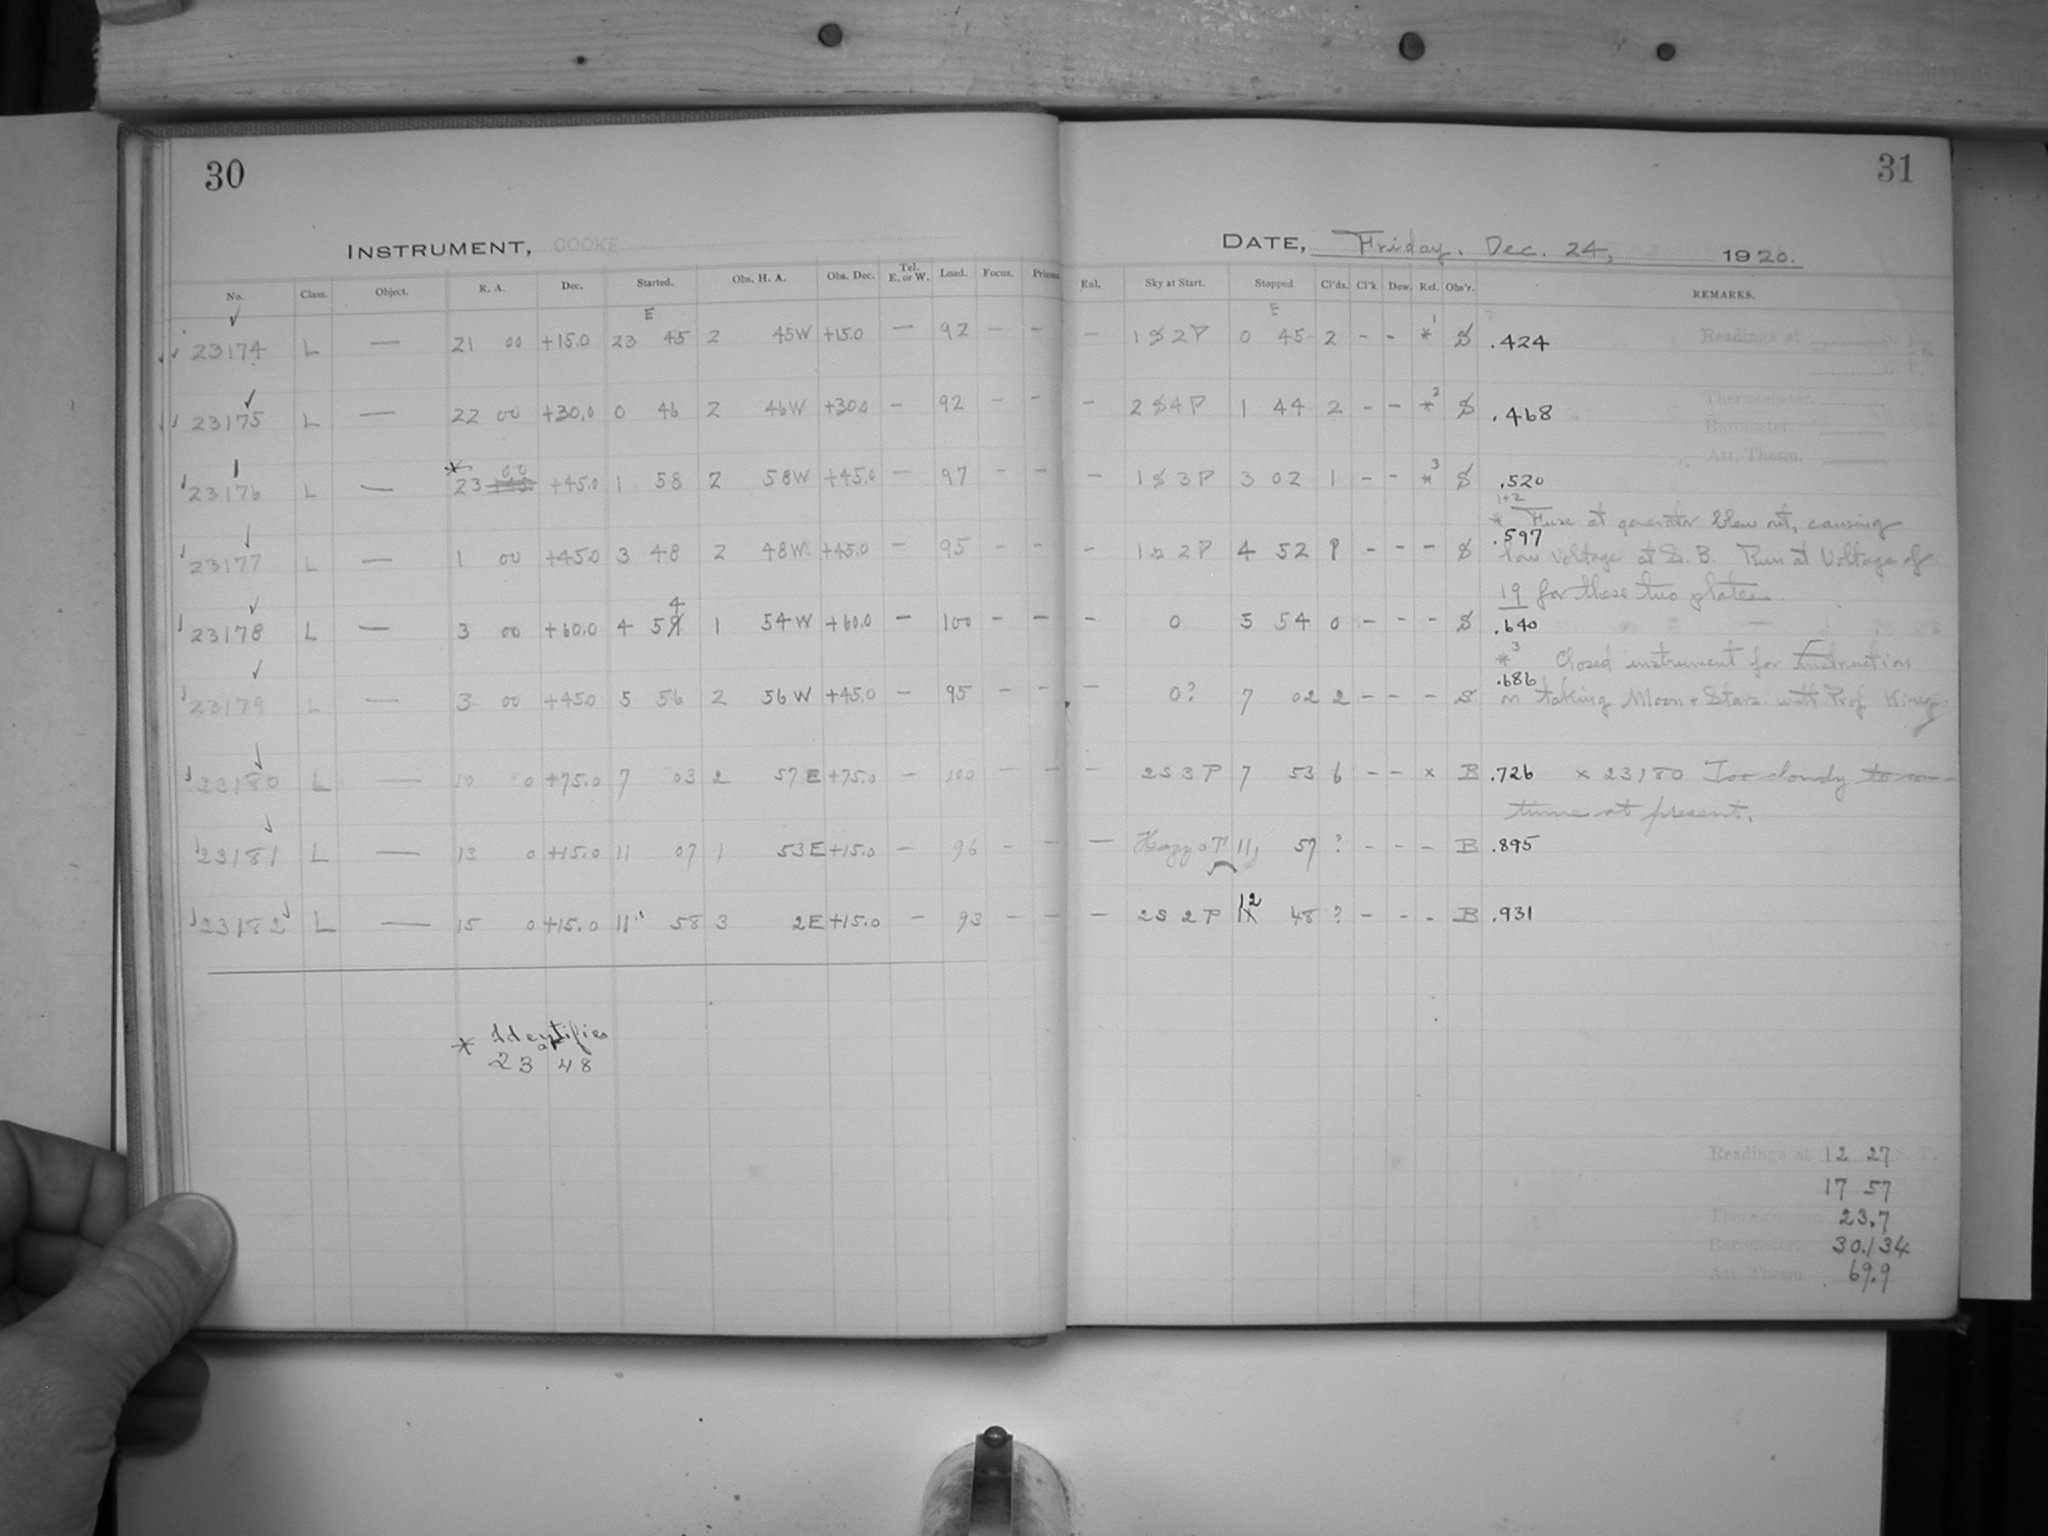 30
INSTRUMENT, COOKE
No. Class. Object. R. A. Dec. Started. Obs. H. A. Obs. Dec. Tel. E. or W. Load. Focus. Prisms
E
23174 L — 21 00 +15.0 23 45 2 45W +15.0 — 92 – –
23175 L — 22 00 +30.0 0 46 2 46W +30.0 – 92 – –
* 00
23176 L — 23 +45.0 1 58 2 58W +45.0 – 97 – –
23177 L — 1 00 +45.0 3 48 2 48W +45.0 – 95 – –
4
23178 L — 3 00 +60.0 4 59 1 54W +60.0 – 100 – –
23179 L — 3 00 +45.0 5 56 2 56W +45.0 – 95 – –
23180 L — 10 0 +75.0 7 03 2 57E +75.0 – 100 – –
23181 L — 13 0 +15.0 11 07 1 53E +15.0 – 96 – –
23182 L — 15 0 +15.0 11 58 3 2E +15.0 – 93 – –
* Identifies
as
23 48
31
DATE, Friday. Dec. 24, 1920.
Enl. Sky at Start. Stopped Cl'ds. Cl'k Dew. Ref. Obs'r. REMARKS.
E
– 1S2P 0 45 2 – – *1 S .424 Readings at
– 2S4P 1 44 2 – – *2 S .468 Thermometer.
Barometer.
Att. Therm.
– 1S3P 3 02 1 – – *3 S .520
1+2
* Fuse at generator blew out, causing
– 1S2P 4 52 P – – – S .597
low voltage at S.B. Run at Voltage of
19 for these two plates.
– 0 5 54 0 – – – S .640
*3 Closed instrument for Instruction
– 0? 7 02 2 – – – S .686
on taking Moon + Stars with Prof King.
– 2S3P 7 53 6 – – x B .726 x 23180 Too cloudy to con-
tinue at present.
– Hazy 0P 11 57 ? – – – B .895
12
– 2S2P 11 48 ? – – – B .931
Readings at 12 27 S. T.
17 57
23.7
Barometer 30.134
Att. Therm 69.9